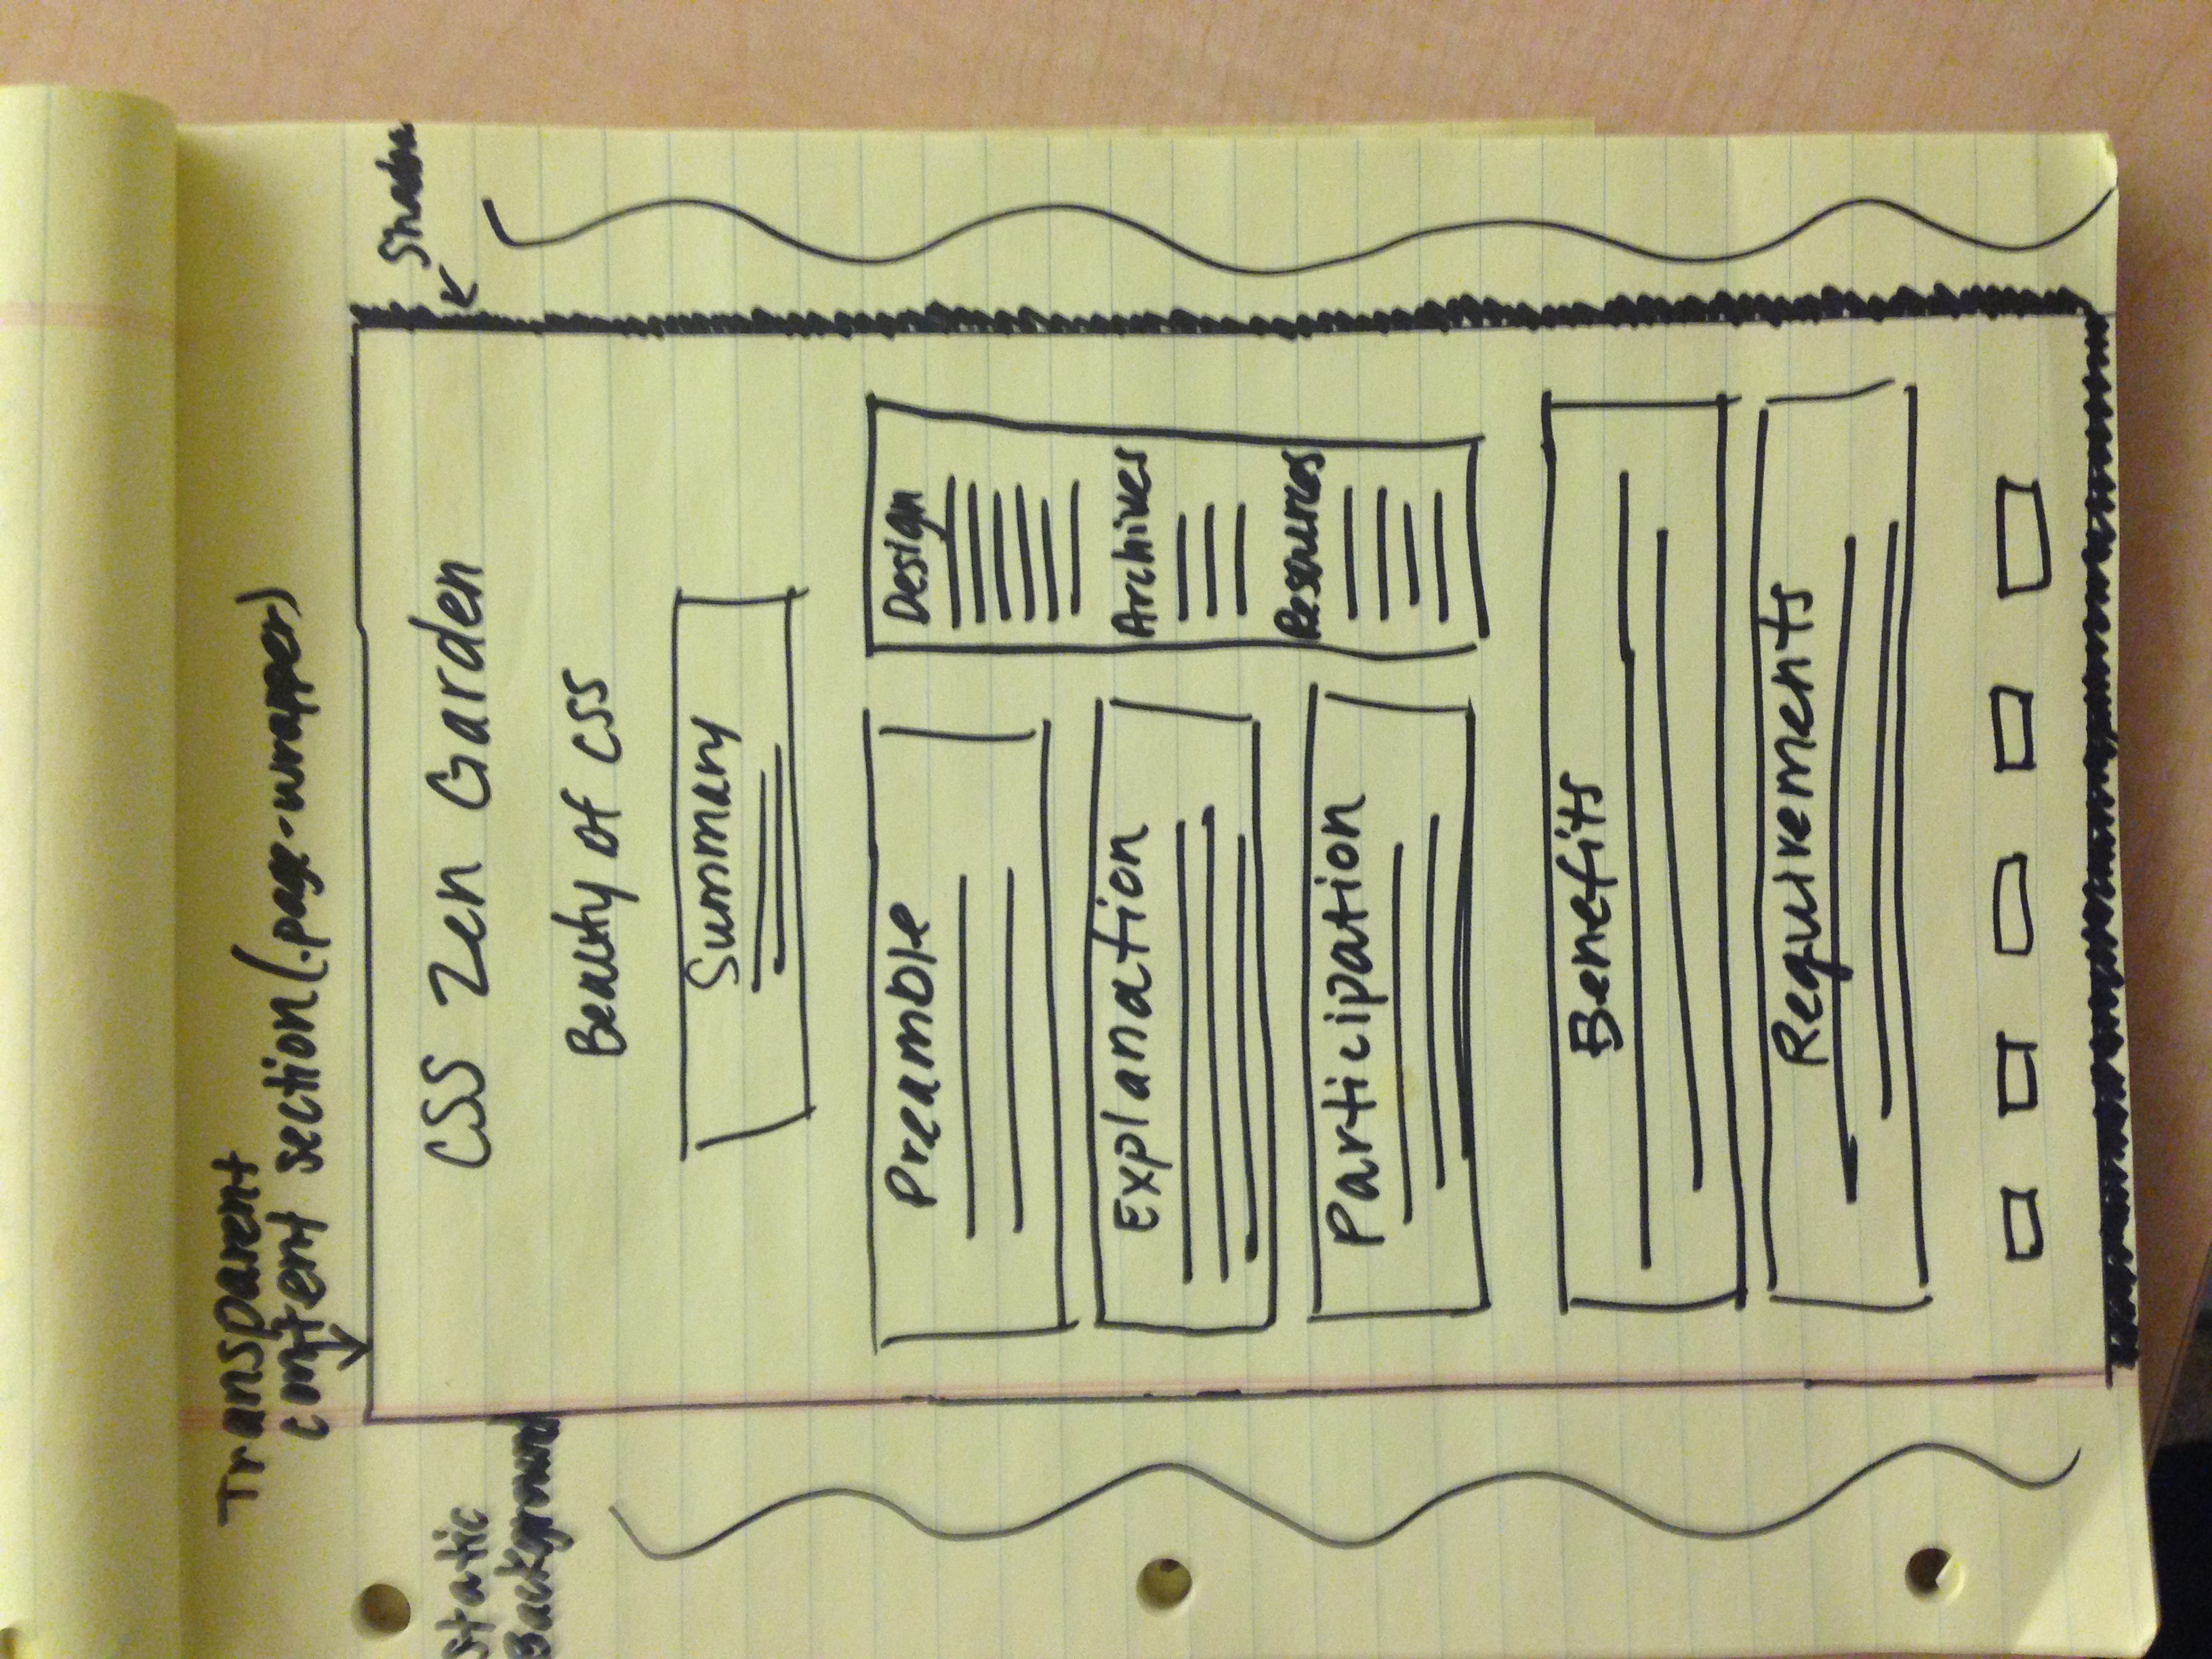 Transparent
content section (.page-wrapper)
Static
Background
CSS Zen Garden
Beauty of CSS
Summary
Preamble
Explanation
Participation
Design
Archives
Resources
Benefits
Requirements